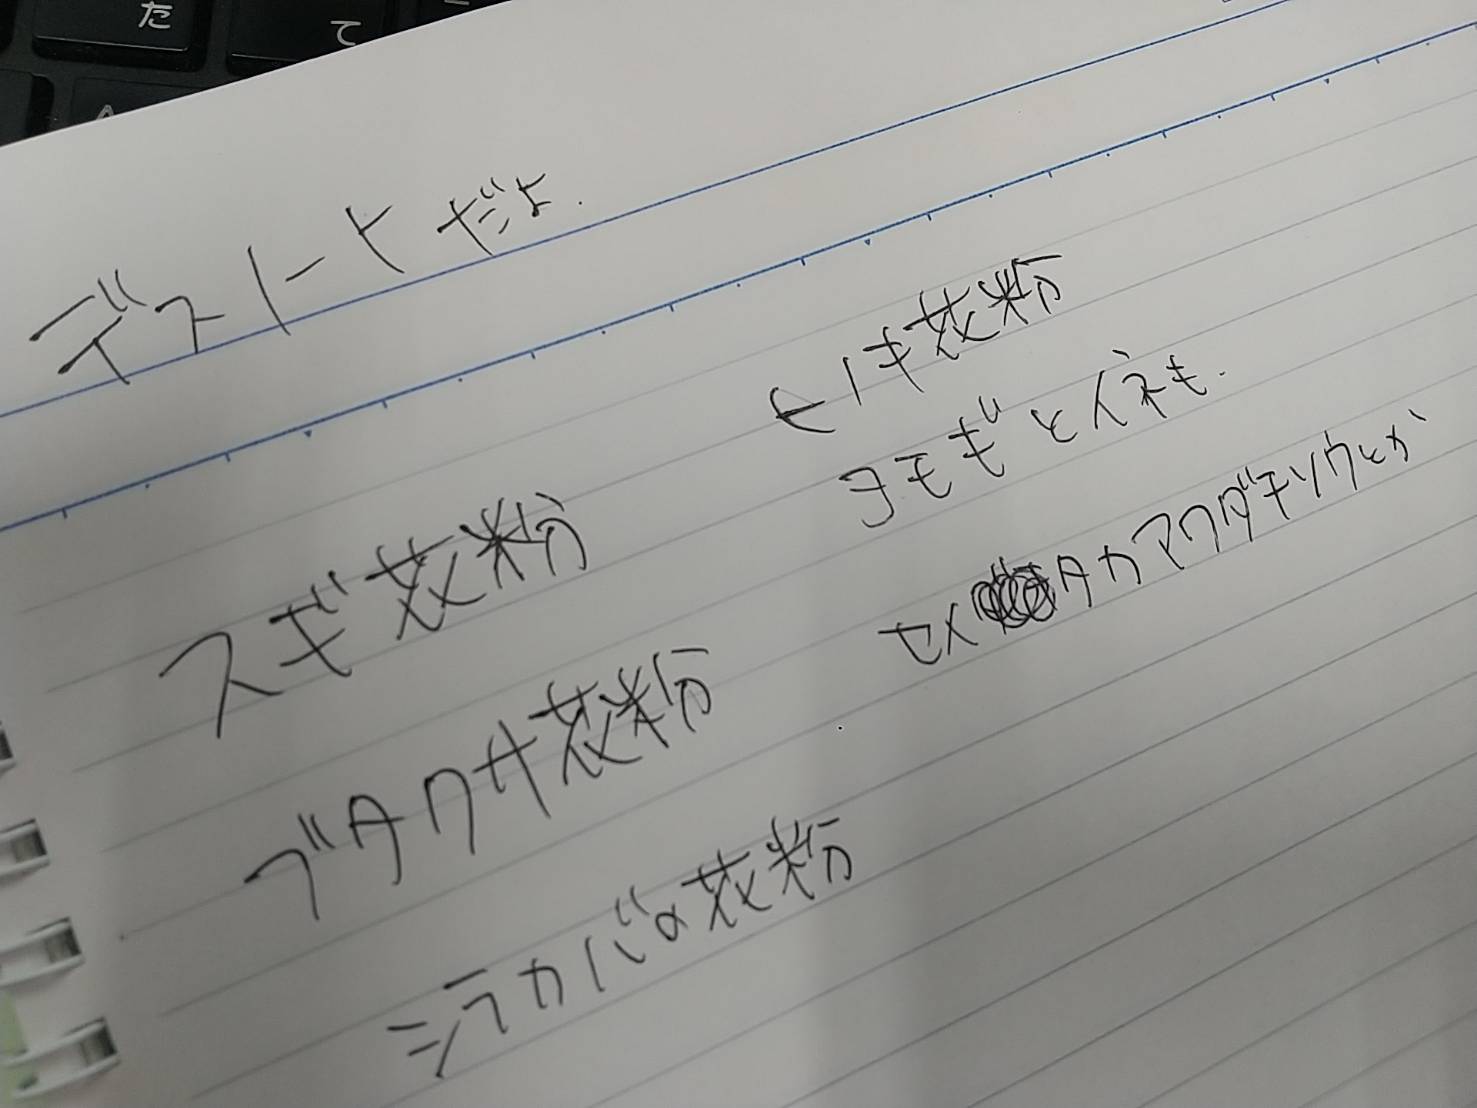 た
て
デスノートだよ.
スギ花粉
ブタクサ花粉
シラカバの花粉
ヒノキ花粉
ヨモギとイネも.
セイタカアワダチソウとか